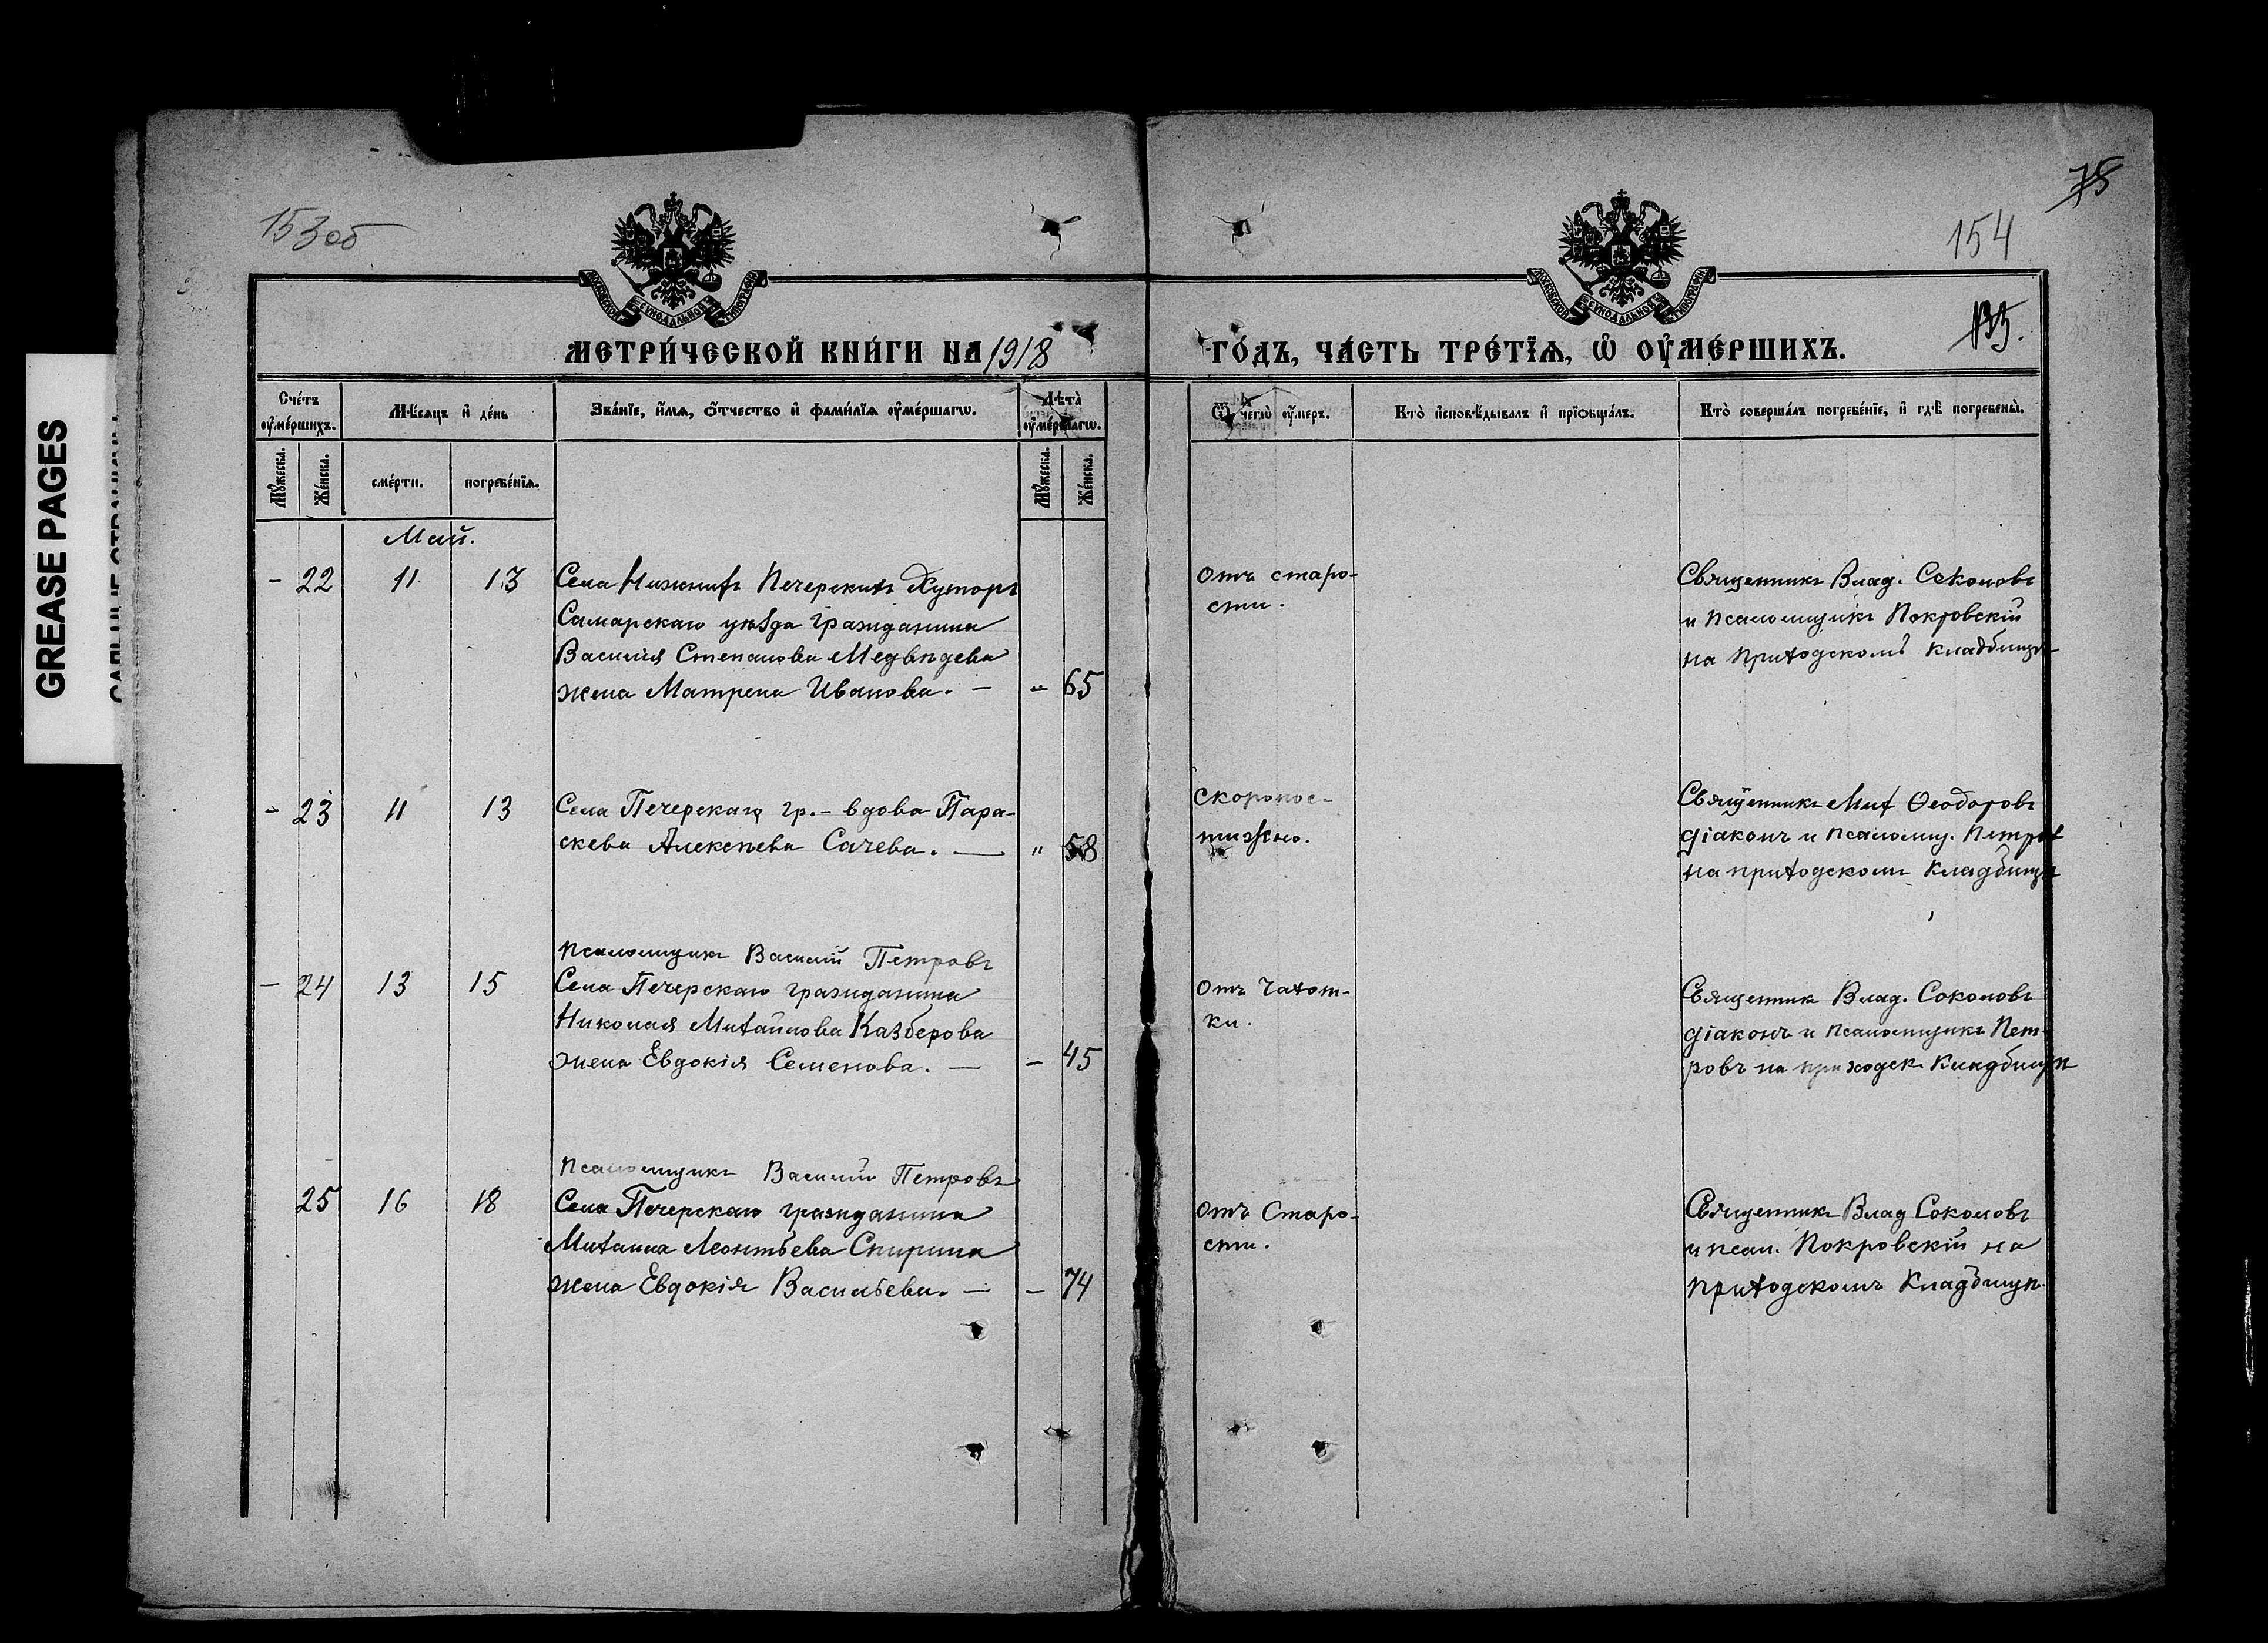 GREASE PAGES
153 об
154
МЕТРИ́ЧЕСКОЙ КНИ́ГИ НА 1918
ГО́ДЪ, ЧА́СТЬ ТРЕ́ТЇѦ, Ѡ҆ ОУ҆МЕ́РШИХЪ.
Сче́тъ оу҆ме́ршихъ.
Мѣ́сяцъ и҆ де́нь
Зва́нїе, и҆́мѧ, ѻ҆́тчество и҆ фами́лїѧ оу҆ме́ршагѡ.
Лѣ́та оу҆ме́ршагѡ.
Ѿ чегѡ̀ оу҆́меръ.
Кто̀ и҆сповѣ́дывалъ и҆ прїѻбща́лъ.
Кто̀ соверша́лъ погребе́нїе, и҆ гдѣ̀ погребены̀.
Мꙋ́жеска.
Же́нска.
сме́рти.
погребе́нїѧ.
Мꙋ́жеска.
Же́нска.
Май.
- 22 11 13 Села Нижнихъ Печерскихъ Хуторъ
Самарскаго уѣзда гражданина
Василія Степанова Медвѣдева
жена Матрена Иванова. — - 65
Отъ старо-
сти.
Священникъ Влад. Соколовъ
и псаломщикъ Покровскій
на приходскомъ кладбищѣ
- 23 11 13 Села Печерскаго гр. - вдова Пара-
скева Алексѣева Сачева. — " 58
Скоропос-
тижно.
Священникъ Мих Ѳеодоровъ
діаконъ и псаломщ. Петровъ
на приходскомъ кладбищѣ
Псаломщикъ Василій Петровъ
- 24 13 15 Села Печерскаго гражданина
Николая Михайлова Казберова
жена Евдокія Семенова. — - 45
Отъ Чахот-
ки.
Священник Влад. Соколовъ
діаконъ и псаломщикъ Пет-
ровъ на приходск. кладбищѣ
Псаломщикъ Василій Петровъ
25 16 18 Села Печерскаго гражданина
Михаила Леонтьева Спирина
жена Евдокія Васильева. — - 74
Отъ Старо-
сти.
Священникъ Влад Соколовъ
и псал. Покровскій на
приходскомъ кладбищѣ.